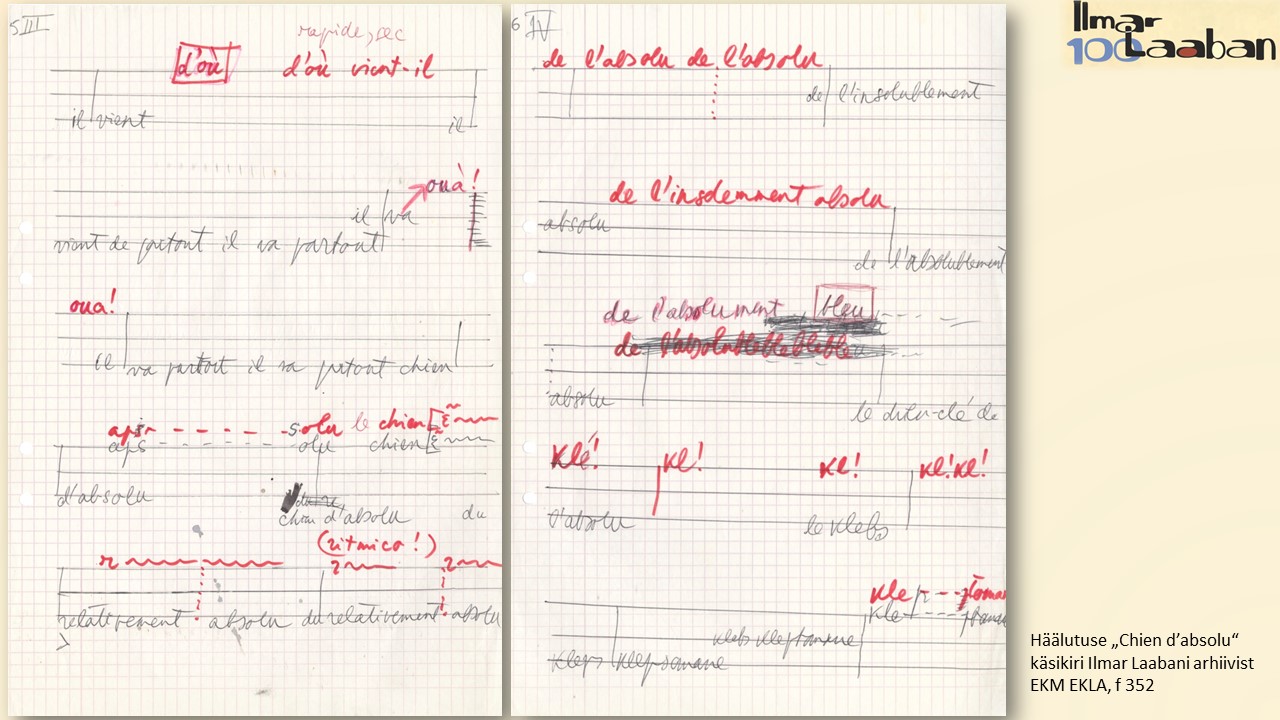 5 III
rapide, sec
d'où d'où vient-il
il vient il
ouà!
il va
vient de partout il va partout
oua!
il va partout il va partout chien
aps solu le chien
aps olu chien
d'absolu
chien d'absolu du
(ritmico!)
relativement absolu du relativement absolu
6 IV
de l'absolu de l'absolu
de l'insolublement
de l'insolemment absolu
absolu
de l'absolublement
de l'absolument bleu
de l'absolublebleblebleu
absolu
le dilu-clé de
Klé! Kl! Kl! Kl! Kl!
l'absolu le klebs
kle ptoman
kle ptoman
klebs kleptomane
kleps klepsomane
Ilmar
100 Laaban
Häälutuse „Chien d'absolu“
käsikiri Ilmar Laabani arhiivist
EKM EKLA, f 352